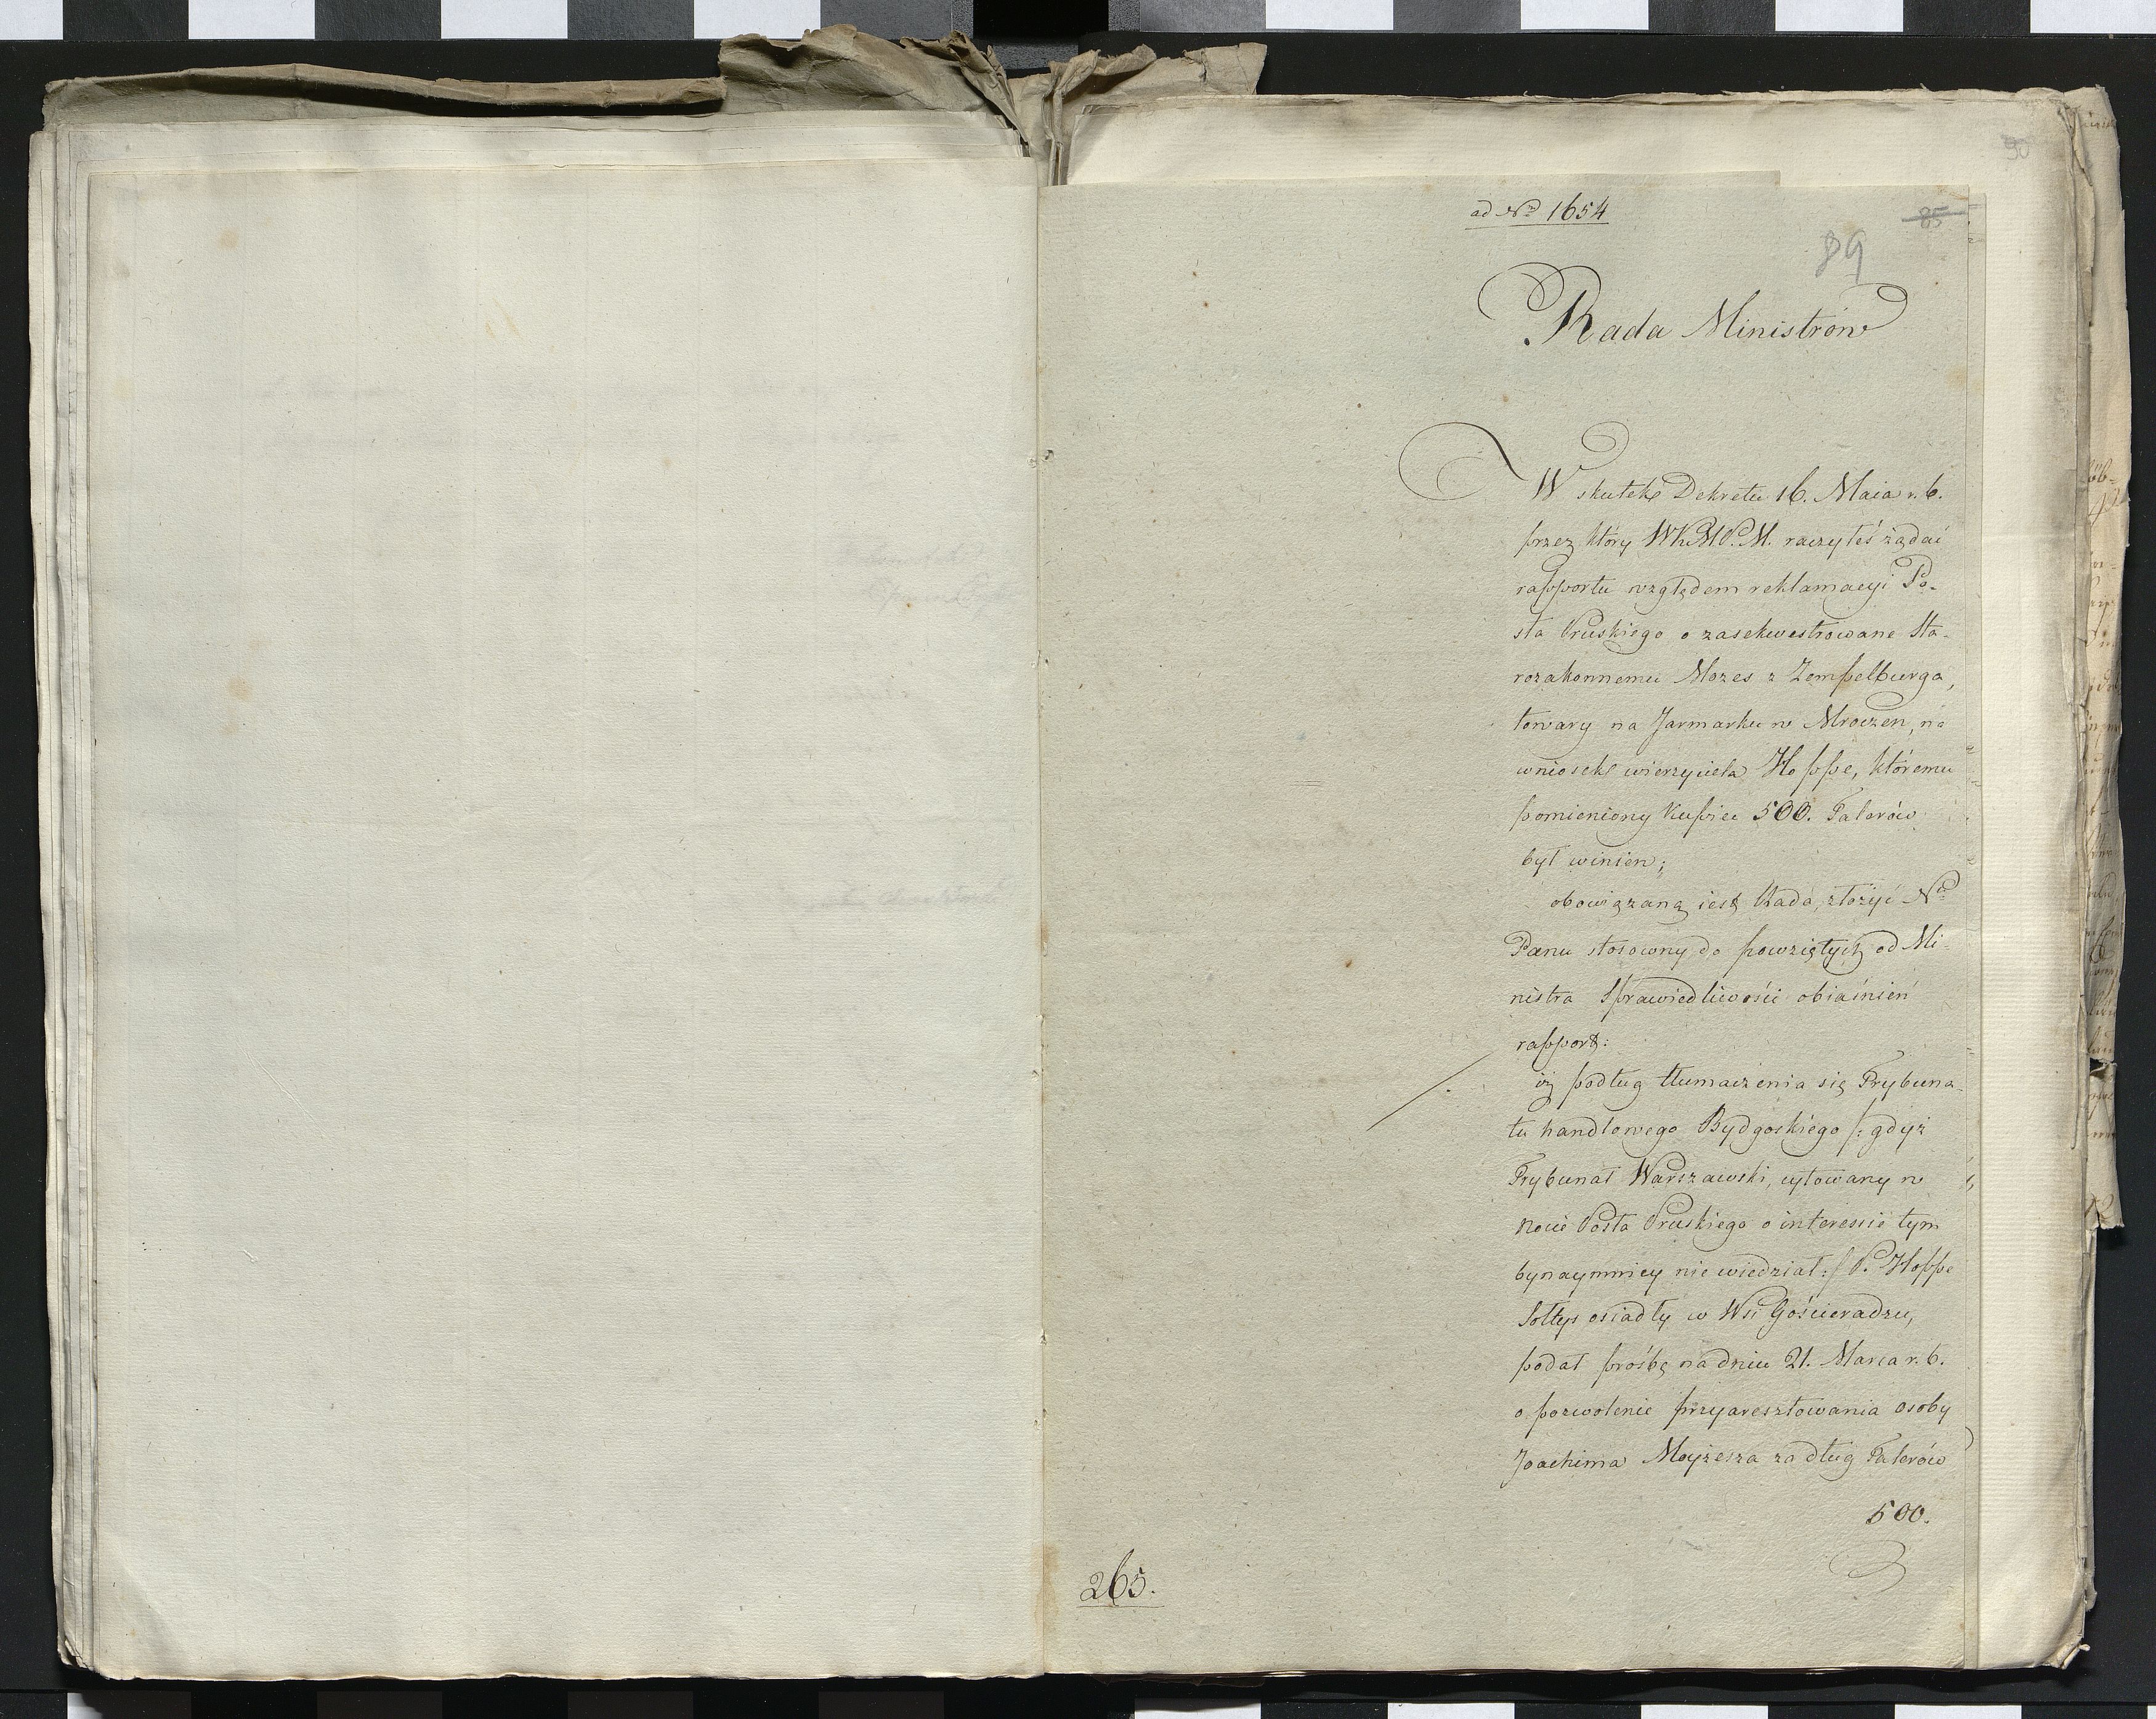 90
ad Nrm 1654
85
89
Rada Ministrów
W skutek Dekretu 16. Maia r. b.
przez który WKMP.M. raczyłeś żądać
rapportu względem reklamacyi Po-
sła Pruskiego o zasekwestrowane Sta-
rozakonnemu Mozes z Zempelburga,
towary na Jarmarku w Mroczen, na
wniosek wierzyciela Hoppe, któremu
pomieniony Kupiec 500. Talarów
był winien;
obowiązaną iest Rada, złożyć N.
Panu stosowny do powziętych od Mi-
nistra Sprawiedliwości obiaśnień
rapport:
iż podług tłumaczenia się Trybuna-
łu handlowego Bydgoskiego /: gdyż
Trybunał Warszawski, cytowany w
nocie Posła Pruskiego o interessie tym
bynaymniey nie wiedział :/ P. Hoppe
Sołtys osiadły w Wsi Gościeradzu,
podał prośbę na dniu 21. Marca r. b.
o pozwolenie przyaresztowania osoby
Joachima Moyżesza za dług Talarów
500.
265.